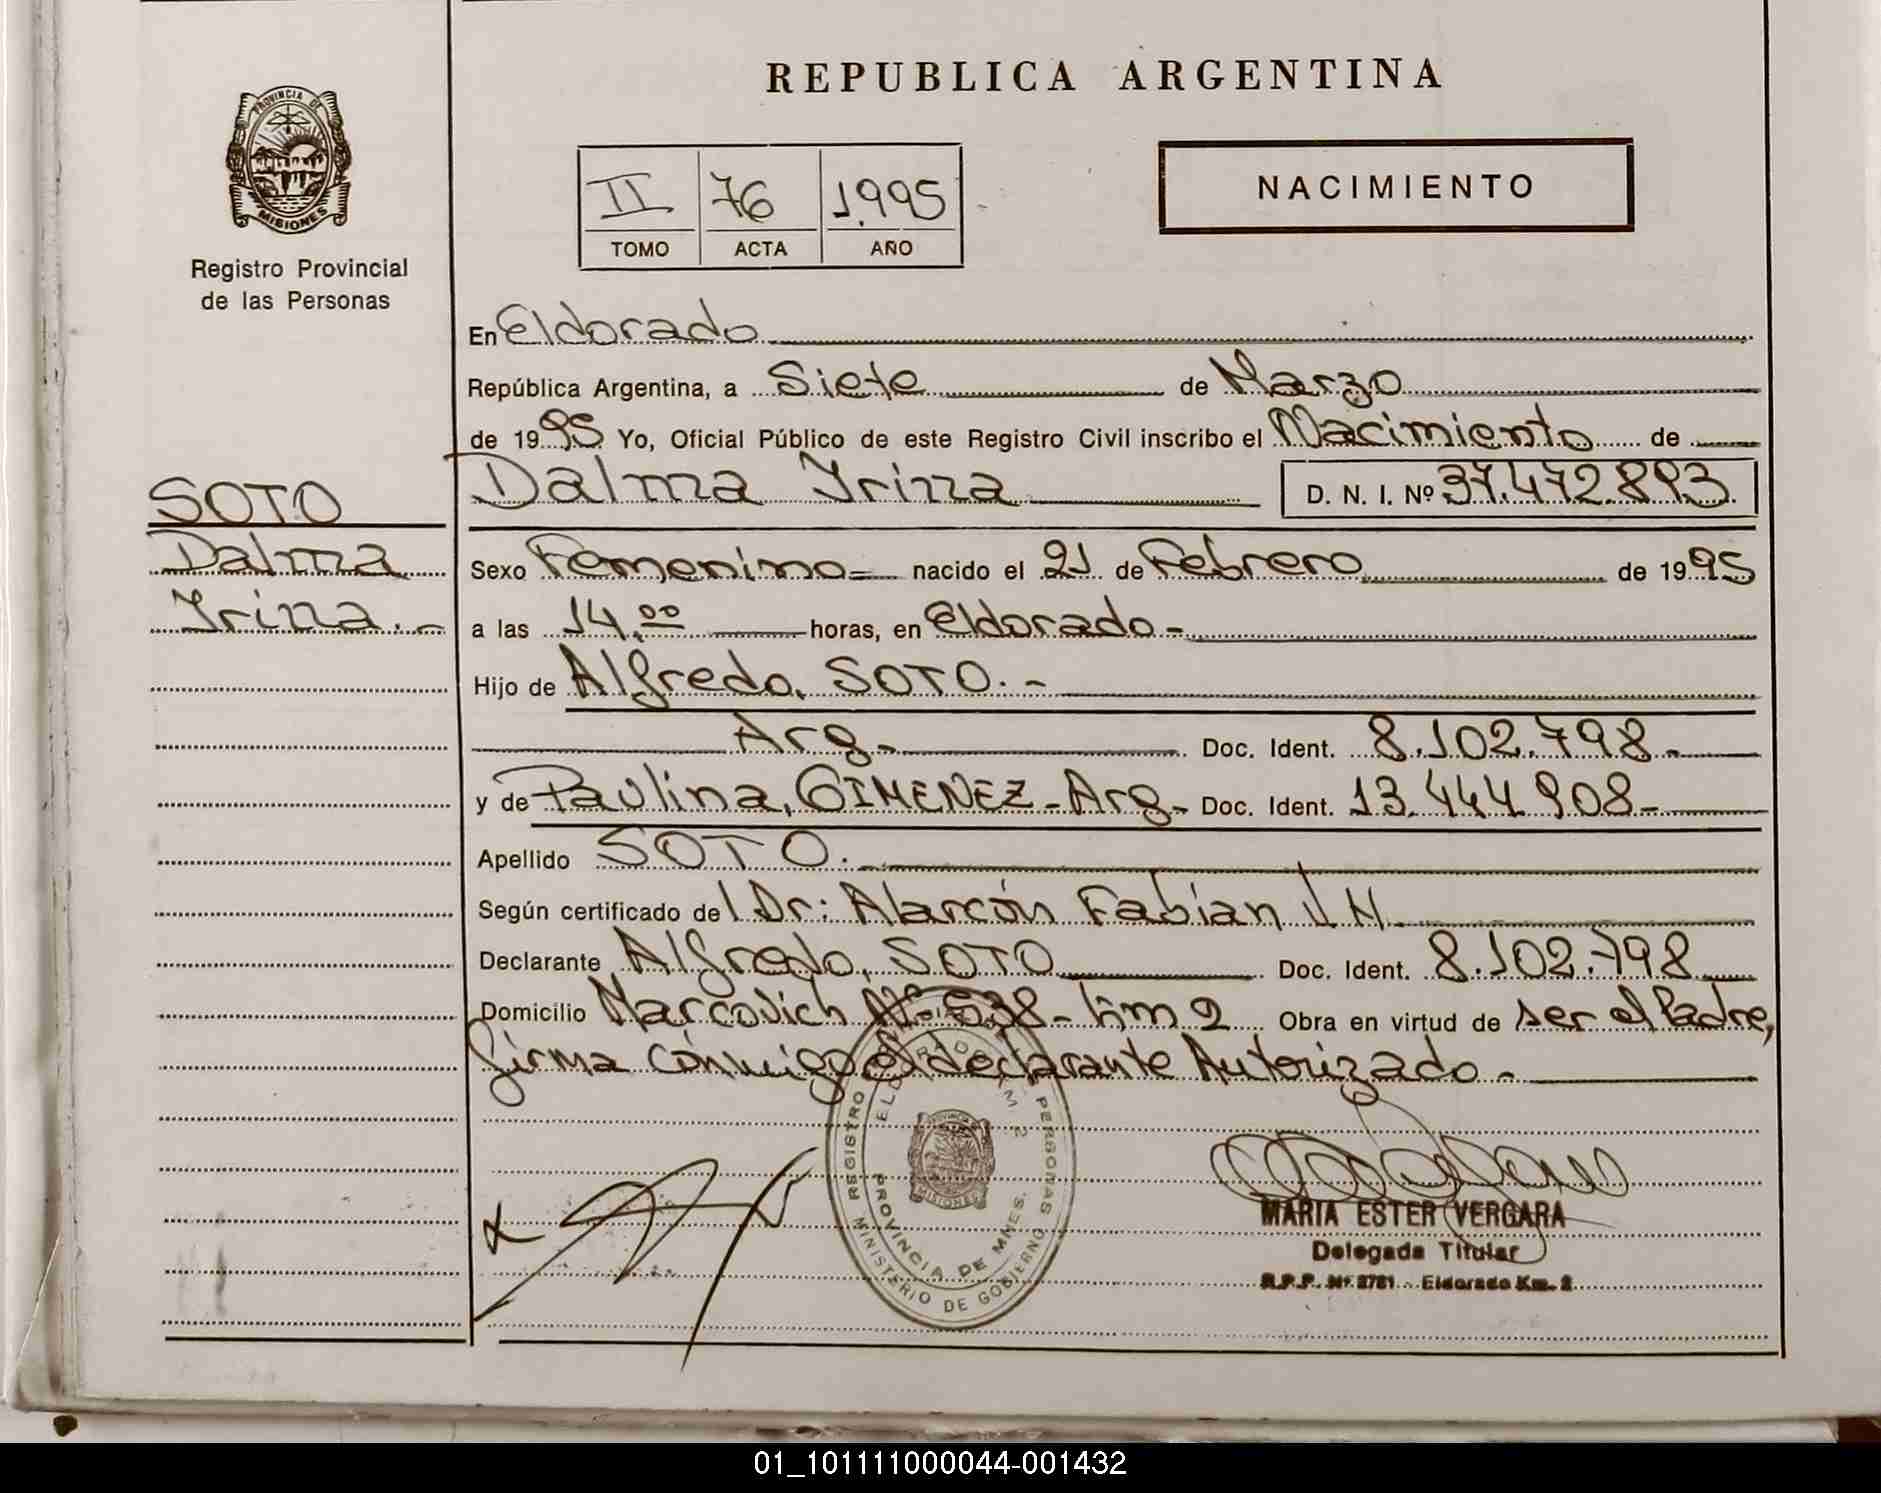 REPUBLICA ARGENTINA
PROVINCIA DE
MISIONES
Registro Provincial
de las Personas
II 76 1.995
TOMO ACTA AÑO
NACIMIENTO
En Eldorado
República Argentina, a Siete de Marzo
de 1995 Yo, Oficial Público de este Registro Civil inscribo el Nacimiento de
SOTO
Dalma Irina
Dalma Irina D. N. I. Nº 37.472.893
Sexo Femenino nacido el 21 de Febrero de 1995
a las 14.00 horas, en Eldorado -
Hijo de Alfredo, SOTO. -
Arg. Doc. Ident. 8.102.798-
y de Paulina, GIMENEZ - Arg - Doc. Ident. 13.444.908-
Apellido SOTO.
Según certificado del Dr: Alarcón Fabian J H.
Declarante Alfredo, SOTO Doc. Ident. 8.102.798
Domicilio Marcovich Nº 538 - km 2 Obra en virtud de ser el Padre,
firma conmigo el declarante Autorizado -
REGISTRO PERSONAS
ELDORADO KM. 2
PROVINCIA DE MNES.
MINISTERIO DE GOBIERNO
PROVINCIA
MISIONES
MARIA ESTER VERGARA
Delegada Titular
R.P.P. Nº 2781 - Eldorado Km. 2
01_101111000044-001432